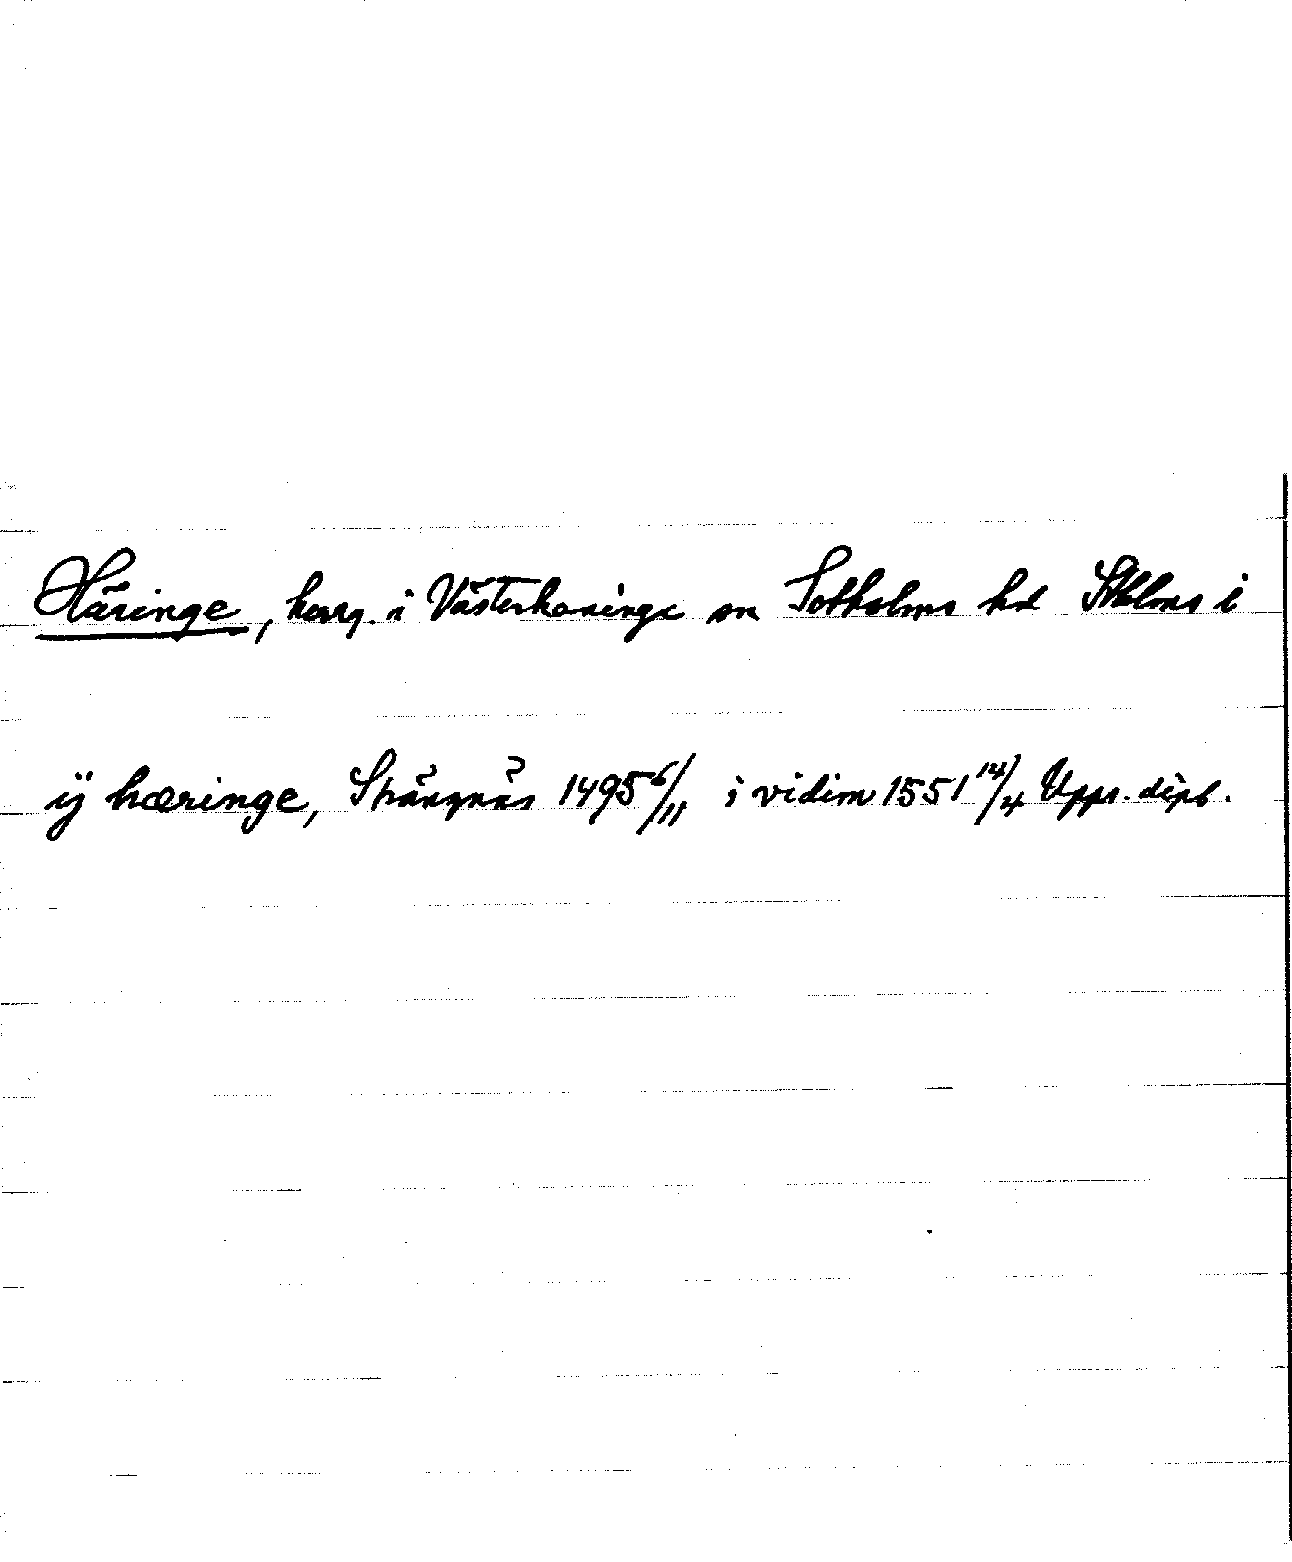 Häringe, herrg. i Västerhaninge sn Sotholms hd Sthlms l
ij hæringe, Strängnäs 1495 6/11 i vidim 1551 14/4 Upps. dipl.